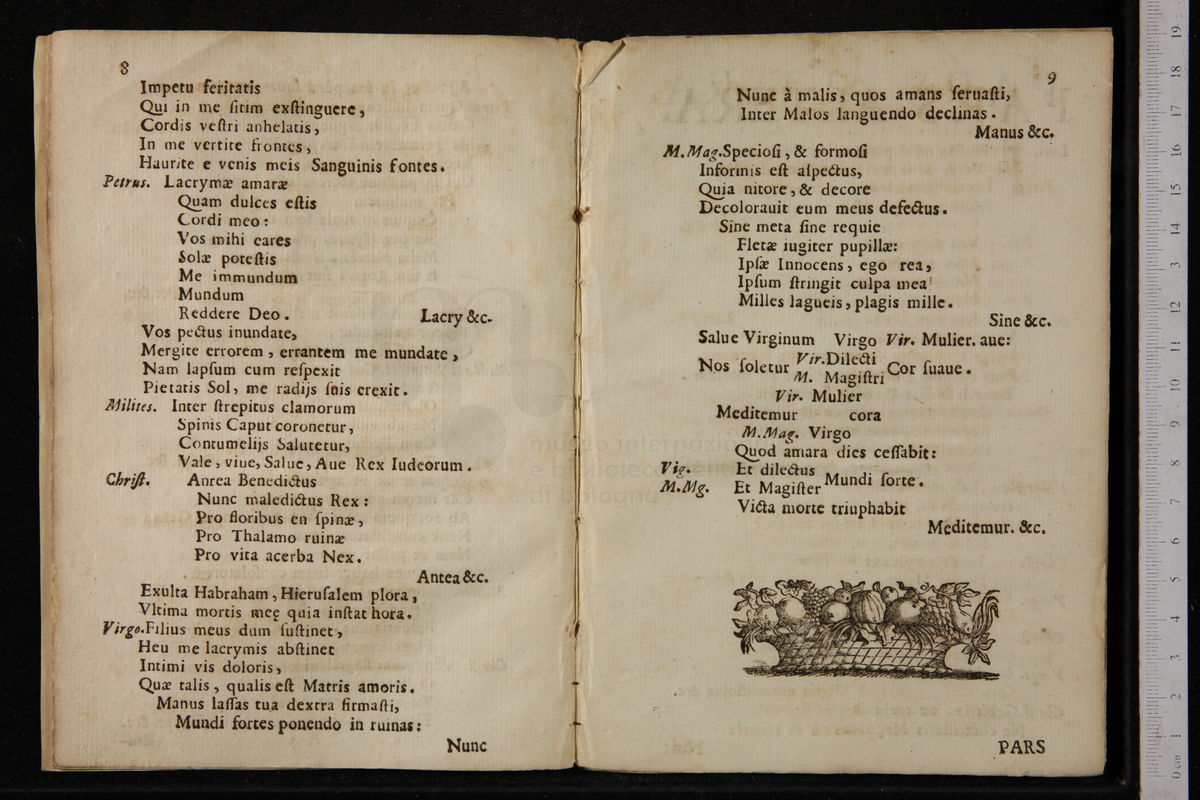 8
Impetu feritatis
Qui in me ſitim exſtinguere,
Cordis veſtri anhelatis,
In me vertite frontes,
Haurite e venis meis Sanguinis fontes.
Petrus. Lacrymæ amaræ
Quam dulces eſtis
Cordi meo:
Vos mihi cares
Solæ poteſtis
Me immundum
Mundum
Reddere Deo. Lacry &c.
Vos pectus inundate,
Mergite errorem, errantem me mundate,
Nam lapſum cum reſpexit
Pietatis Sol, me radijs ſuis erexit.
Milites. Inter ſtrepitus clamorum
Spinis Caput coronetur,
Contumelijs Salutetur,
Vale, viue, Salue, Aue Rex Iudeorum.
Chriſt. Anrea Benedictus
Nunc maledictus Rex:
Pro floribus en ſpinæ,
Pro Thalamo ruinæ
Pro vita acerba Nex.
Antea &c.
Exulta Habraham, Hieruſalem plora,
Vltima mortis meę quia inſtat hora.
Virgo. Filius meus dum ſuſtinet,
Heu me lacrymis abſtinet
Intimi vis doloris,
Quæ talis, qualis eſt Matris amoris.
Manus laſſas tua dextra firmaſti,
Mundi fortes ponendo in ruinas:
Nunc
9
Nunc à malis, quos amans ſeruaſti,
Inter Malos languendo declinas.
Manus &c.
M. Mag. Specioſi, & formoſi
Informis eſt aſpectus,
Quia nitore, & decore
Decolorauit eum meus defectus.
Sine meta ſine requie
Fletæ iugiter pupillæ:
Ipſæ Innocens, ego rea,
Ipſum ſtringit culpa mea
Milles lagueis, plagis mille.
Sine &c.
Salue Virginum Virgo Vir. Mulier. aue:
Nos ſoletur Vir. Dilecti
M. Magiſtri Cor ſuaue.
Vir. Mulier
Meditemur cora
M. Mag. Virgo
Quod amara dies ceſſabit:
Vig. Et dilectus
M. Mg. Et Magiſter Mundi ſorte.
Victa morte triuphabit
Meditemur. &c.
PARS
museo internazio
e biblioteca della
di bologna
0 cm 1 2 3 4 5 6 7 8 9 10 11 12 13 14 15 16 17 18 19